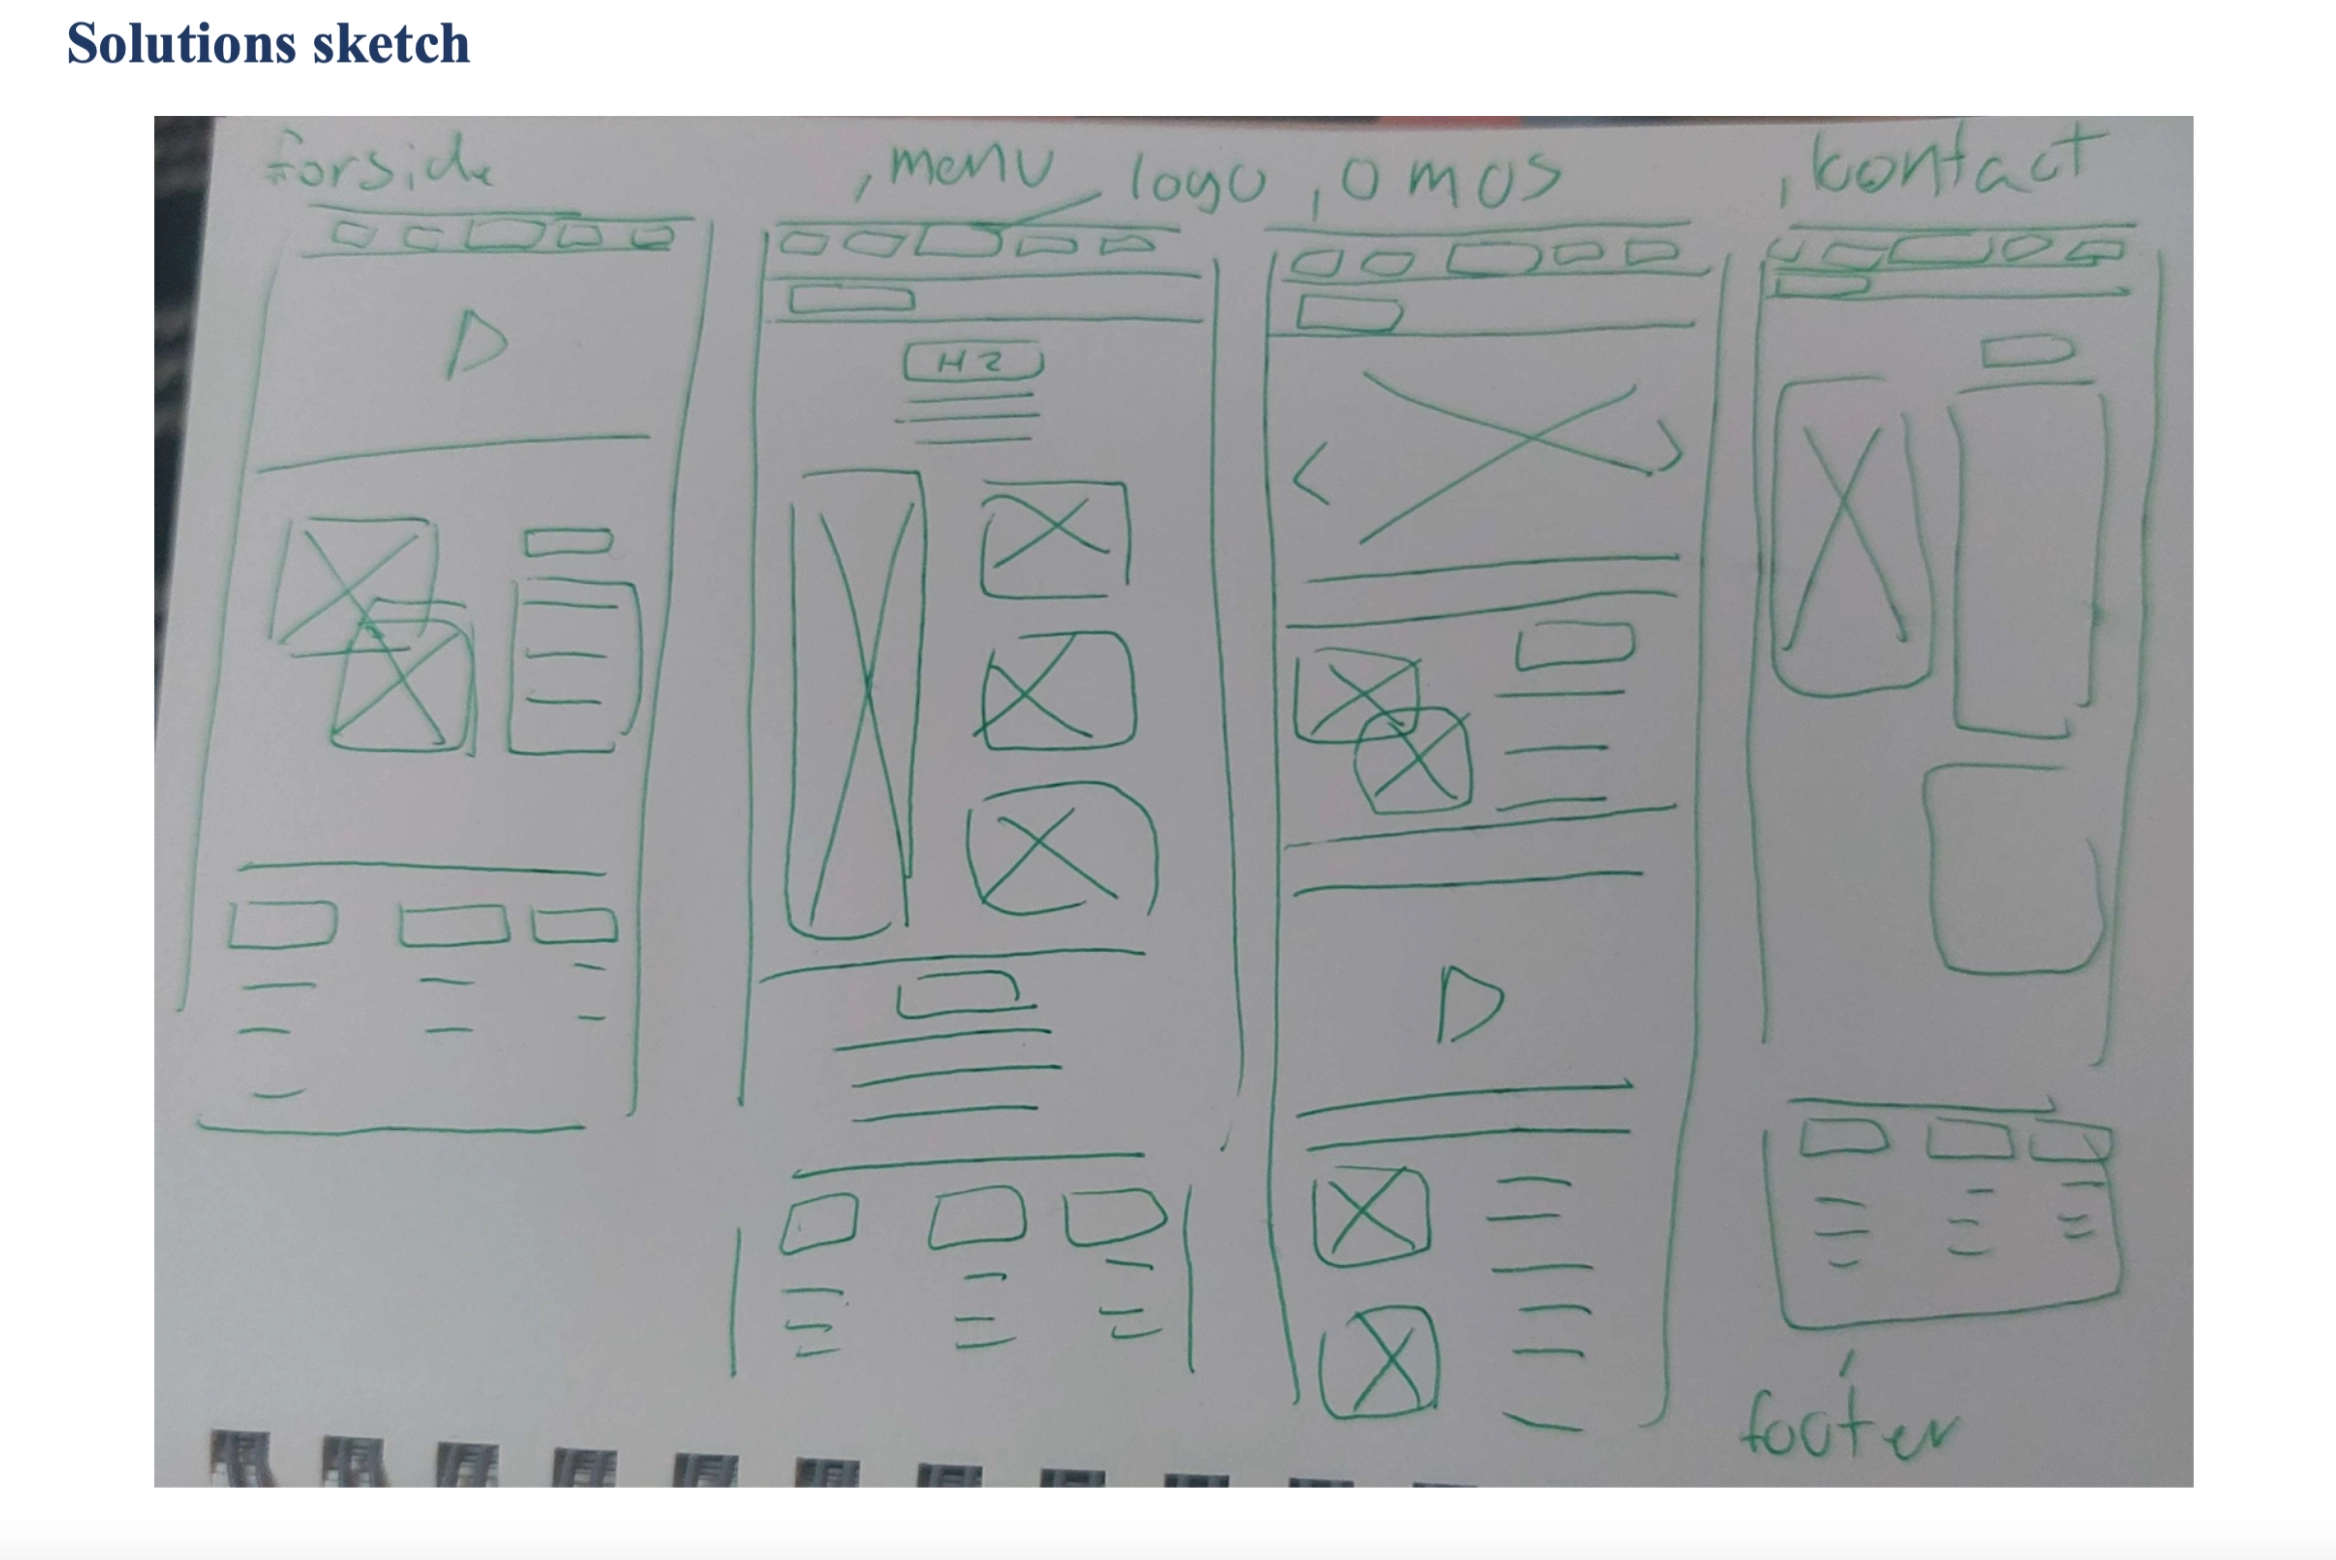 Solutions sketch
forside , menu logo , om os , kontact
H2
footer